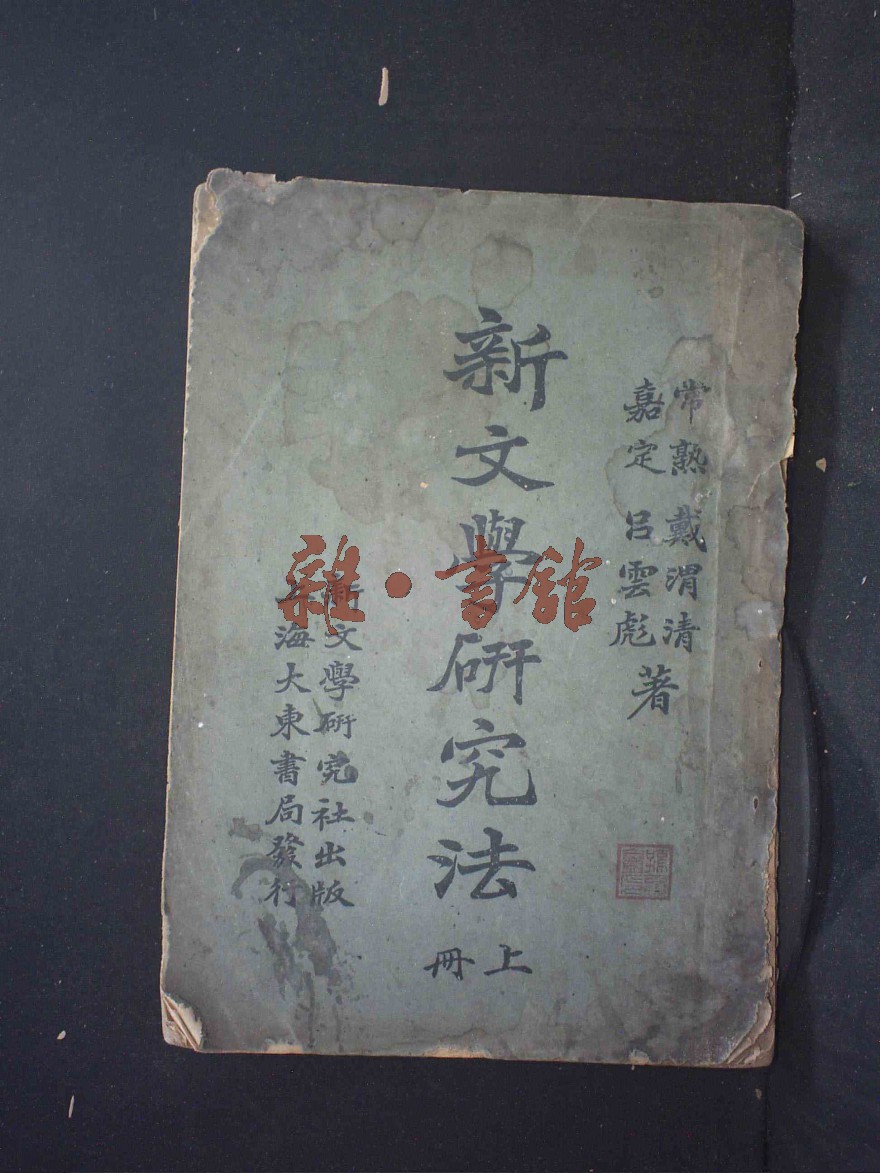 常熟戴渭清
嘉定呂雲彪
著
新文學研究法
上冊
新文學研究社出版
上海大東書局發行
雜·書館